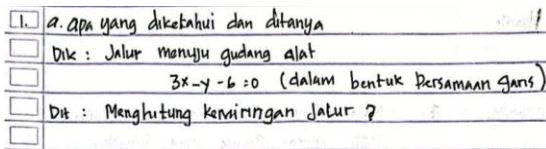 1. a. apa yang diketahui dan ditanya
Dik : Jalur menuju gudang alat
3x - y - 6 = 0 (dalam bentuk Persamaan garis)
Dit : Menghitung kemiringan Jalur ?